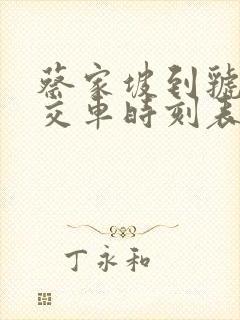 蔡家坡到虢
交车时刻表
丁永和